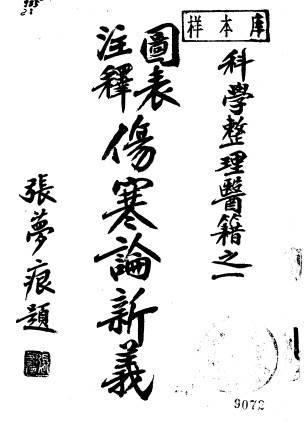 样本库
科學整理醫籍之一
圖表
注釋
傷寒論新義
張夢痕題
9072